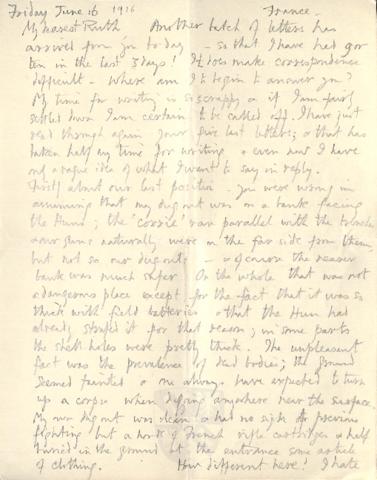 Friday June 16 1916 France.
My dearest Ruth Another batch of letters has
arrived from you today - so that I have had 9 or
ten in the last 3 days! It does make correspondence
difficult - Where am I to begin to answer you?
My time for writing is so scrappy & if I am fairly
settled down I am certain to be called off. I have just
read through again your five last letters; & that has
taken half my time for writing & even now I have
not a vague idea of what I want to say in reply.
Firstly about our last position - You were wrong in
assuming that my dug out was on a bank facing
the Huns; the ran parallel with the trenches
& our guns naturally were on the far side from them,
but not so our dugouts - & of course the nearer
bank was much safer On the whole that was not
a dangerous place except for the fact that it was so
thick with field batteries & that the Hun had
already strafed it for that reason; in some parts
the shell holes were pretty thick. The unpleasant
fact was the prevalence of dead bodies; the ground
seemed tainted & one always have expected to turn
up a corpse when digging anywhere near the surface.
My own dug out was clean & had no sign of previous
fighting but a horde of French rifle cartridges & half
buried in the ground at the entrance some article
of clothing. How different here! I hate